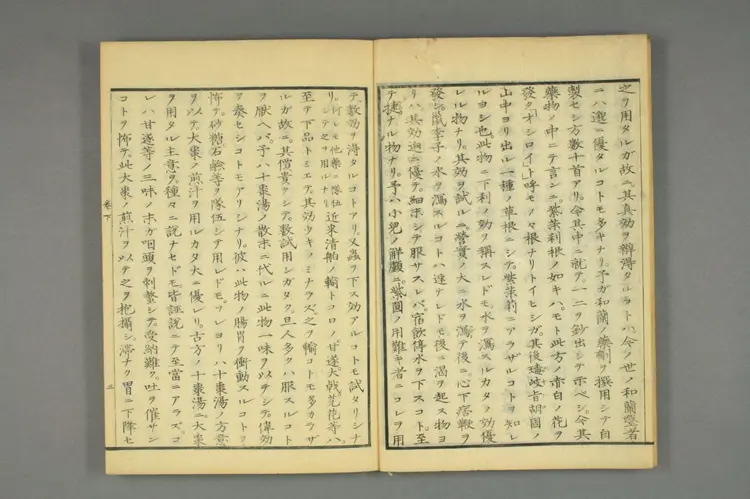 之ヲ用タルガ故ニ其真効ヲ辨得タルコトハ今ノ世ノ和蘭医者
ニハ遥ニ優タルコトモ多キナリ予ガ和蘭ノ薬剤ヲ撰用シテ自
製セシ方数十首アリ今其中ニ就テ一二ヲ鈔出シテ示ベシ今其
藥物ノ中ニテ言ンニ紫茉莉根ノ如キハモト此方ノ赤白ノ花ヲ
發クオシロイト呼モノヽ根ナリトイヒシガ其後遠岐肯胡國ノ
山中ヨリ出ル一種ノ草根ニシテ紫茉莉ニアラザルコトヲ知レ
ルヨシ也此物ニ下利ノ効ヲ稱スレドモ水ヲ瀉スルカタノ効優
レル物ナリ其効ヲ試ルニ營實ノ大ニ水ヲ瀉テ後ニ心下痞鞕ヲ
發シ鼠李子ノ水ヲ瀉スルコトハ速ナレドモ後ニ渇ヲ起ス物ヨ
リハ其効迥ニ優テ細末シテ服サスレバ宿飲停水ヲ下スコト至
テ捷ナル物ナリ予ハ小児ノ解顱ニ紫圓ノ用難キ者ニコレヲ用
テ數効ヲ得タルコトアリ又蟲ヲ下ス効アルコトモ試タリシナ
リ何レモ他藥ニ隊伍シテ之ヲ用ルナリ近來清舶ノ輸トコロノ甘遂大戟芫花等ハ
至テ下品トミエテ其効ウキノミナラズ之ヲ輸コトモ多カラザ
ルガ故ニ其價貴クシテ數試用シガタク且人多クハ服スルコト
ヲ厭ヘバ予ハ十棗湯ノ散末ニ代ルニ此物一味ヲ以テシテ偉効
ヲ奏セシコトモアリシナリ彼ハ此物ノ腸胃ヲ衝動スルコトヲ
怖テ砂糖石鹸等ヲ隊伍シテ用レドモソレヨリハ十棗湯ノ方意
ヲ以テ大棗ノ煎汁ヲ用ルカタ大ニ優レリ古方ノ十棗湯ニ大棗
ヲ用タル主意ヲ種々ニ説ナセドモ皆誣説ニテ至當ニアラズコ
レハ甘遂等ノ三味ノ末ガ咽頭ヲ刺螫シテ受納難ク吐ヲ催サン
コトヲ怖テ此大棗ノ煎汁ヲ以テ之ヲ抱攝シ滞ナク胃ニ下降セ
巻下
三